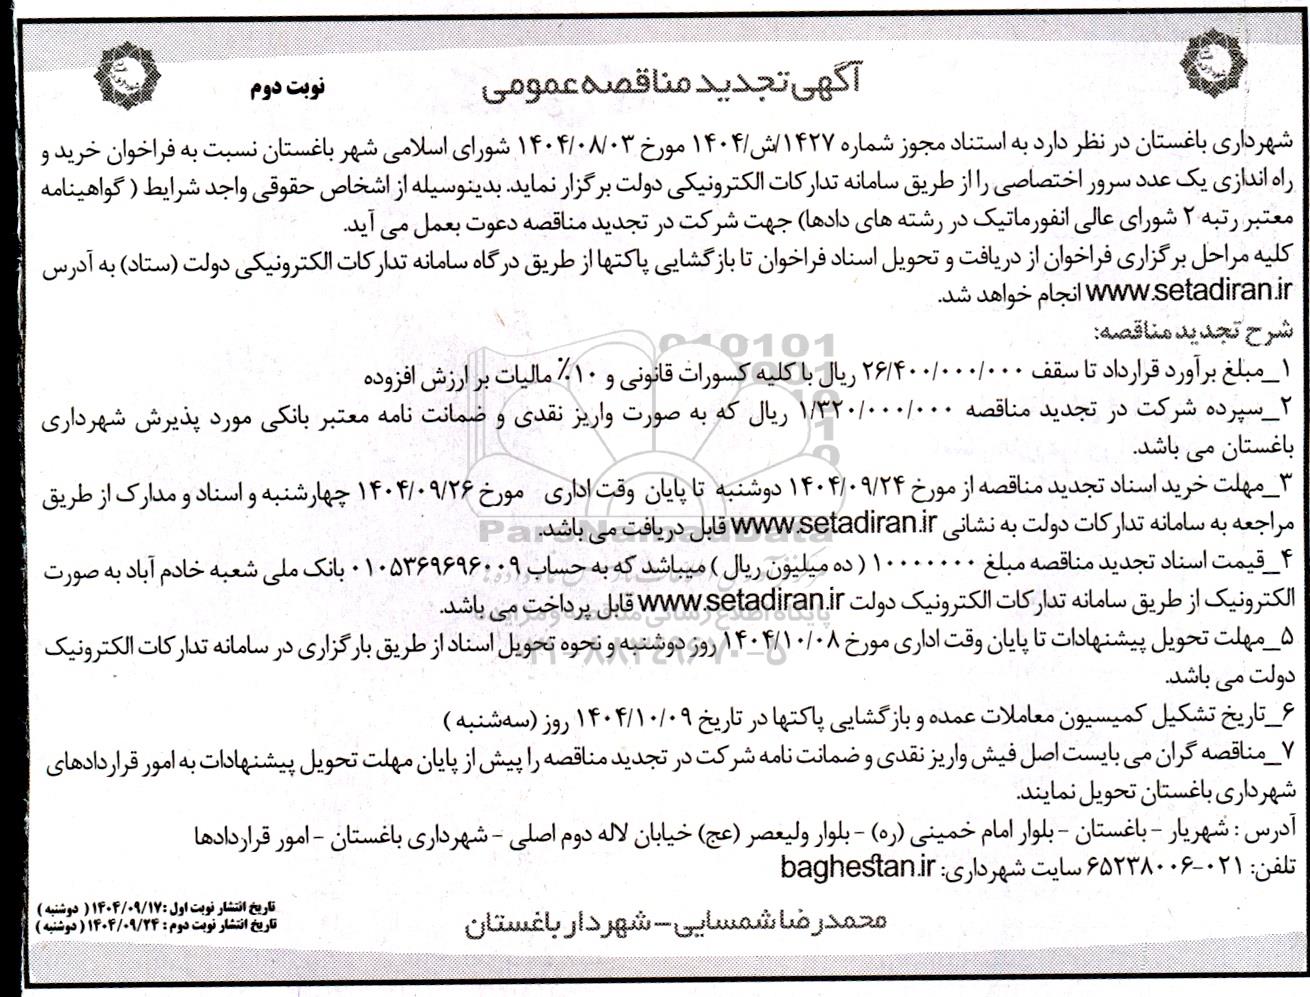 آگهی تجدید مناقصه عمومی
نوبت دوم
شهرداری باغستان در نظر دارد به استناد مجوز شماره ۱۴۲۷/ش/۱۴۰۴ مورخ ۱۴۰۴/۰۸/۰۳ شورای اسلامی شهر باغستان نسبت به فراخوان خرید و
راه اندازی یک عدد سرور اختصاصی را از طریق سامانه تدارکات الکترونیکی دولت برگزار نماید. بدینوسیله از اشخاص حقوقی واجد شرایط ( گواهینامه
معتبر رتبه ۲ شورای عالی انفورماتیک در رشته های دادها) جهت شرکت در تجدید مناقصه دعوت بعمل می آید.
کلیه مراحل برگزاری فراخوان از دریافت و تحویل اسناد فراخوان تا بازگشایی پاکتها از طریق درگاه سامانه تدارکات الکترونیکی دولت (ستاد) به آدرس
www.setadiran.ir انجام خواهد شد.
شرح تجدید مناقصه:
۱_مبلغ برآورد قرارداد تا سقف ۲۶/۴۰۰/۰۰۰/۰۰۰ ریال با کلیه کسورات قانونی و ۱۰٪ مالیات بر ارزش افزوده
۲_سپرده شرکت در تجدید مناقصه ۱/۳۲۰/۰۰۰/۰۰۰ ریال که به صورت واریز نقدی و ضمانت نامه معتبر بانکی مورد پذیرش شهرداری
باغستان می باشد.
۳_مهلت خرید اسناد تجدید مناقصه از مورخ ۱۴۰۴/۰۹/۲۴ دوشنبه تا پایان وقت اداری مورخ ۱۴۰۴/۰۹/۲۶ چهارشنبه و اسناد و مدارک از طریق
مراجعه به سامانه تدارکات دولت به نشانی www.setadiran.ir قابل دریافت می باشد.
۴_قیمت اسناد تجدید مناقصه مبلغ ۱۰۰۰۰۰۰۰ ( ده میلیون ریال ) میباشد که به حساب ۰۱۰۵۳۶۹۶۹۶۰۰۹ بانک ملی شعبه خادم آباد به صورت
الکترونیک از طریق سامانه تدارکات الکترونیک دولت www.setadiran.ir قابل پرداخت می باشد.
۵_مهلت تحویل پیشنهادات تا پایان وقت اداری مورخ ۱۴۰۴/۱۰/۰۸ روز دوشنبه و نحوه تحویل اسناد از طریق بارگزاری در سامانه تدارکات الکترونیک
دولت می باشد.
۶_تاریخ تشکیل کمیسیون معاملات عمده و بازگشایی پاکتها در تاریخ ۱۴۰۴/۱۰/۰۹ روز (سه‌شنبه )
۷_مناقصه گران می بایست اصل فیش واریز نقدی و ضمانت نامه شرکت در تجدید مناقصه را پیش از پایان مهلت تحویل پیشنهادات به امور قراردادهای
شهرداری باغستان تحویل نمایند.
آدرس : شهریار - باغستان - بلوار امام خمینی (ره) - بلوار ولیعصر (عج) خیابان لاله دوم اصلی - شهرداری باغستان - امور قراردادها
تلفن: ۰۲۱-۶۵۲۳۸۰۰۶ سایت شهرداری: baghestan.ir
محمدرضا شمسایی - شهردار باغستان
تاریخ انتشار نوبت اول : ۱۴۰۴/۰۹/۱۷ ( دوشنبه )
تاریخ انتشار نوبت دوم : ۱۴۰۴/۰۹/۲۴ ( دوشنبه )
ParsNamadData
پایگاه اطلاع رسانی مناقصه و مزایده
۰۲۱-۸۸۳۴۹۶۷۰-۵